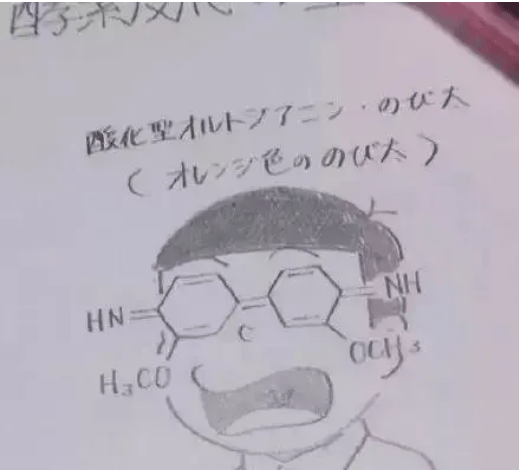 酸化型オルトジアニシン・のび太
(オレンジ色ののび太)
HN= =NH
C
H₃CO OCH₃